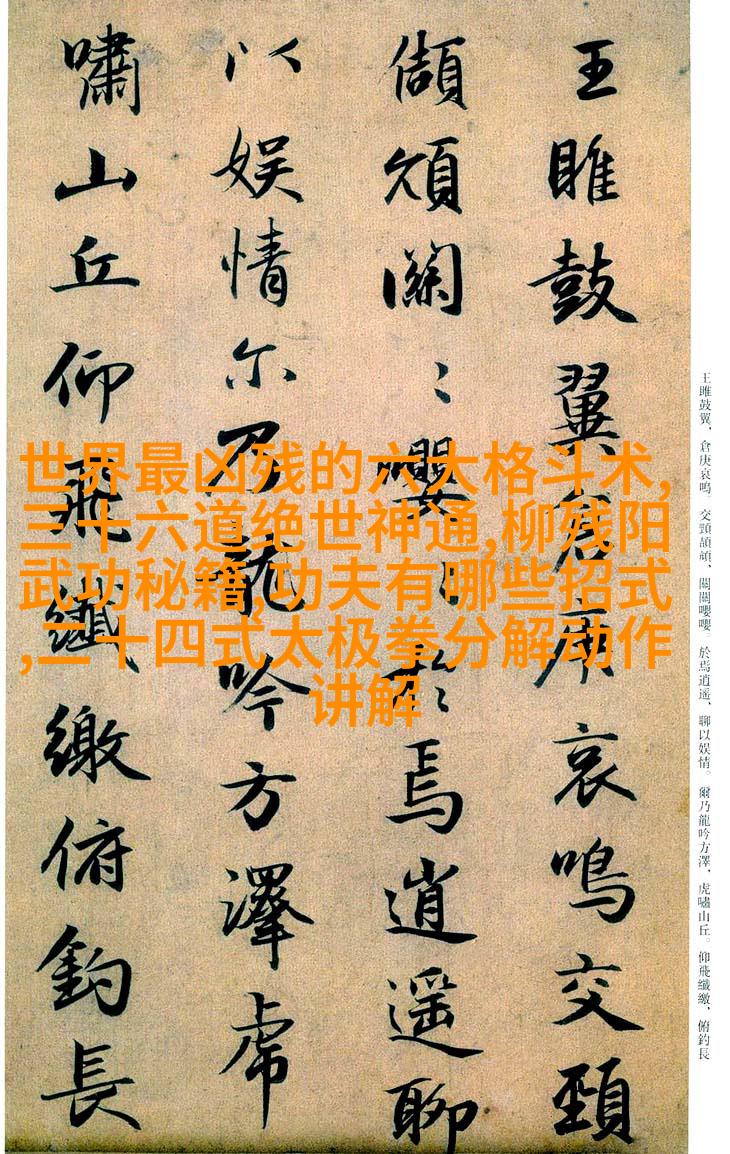 王雎鼓翼倉庚哀鳴交頸
頡頏關〻嚶〻於焉逍遥聊
以娱情尓乃龍吟方澤虎
嘯山丘仰飛纖繳俯釣長
世界最凶残的六大格斗术,
三十六道绝世神通,柳残阳
武功秘籍,功夫有哪些招式
,二十四式太极拳分解动作
讲解
王雎鼓翼、倉庚哀鳴。交頸頡頏、關關嚶嚶。於焉逍遥、聊以娱情。爾乃龍吟方澤、虎嘯山丘。仰飛纖繳、俯釣長